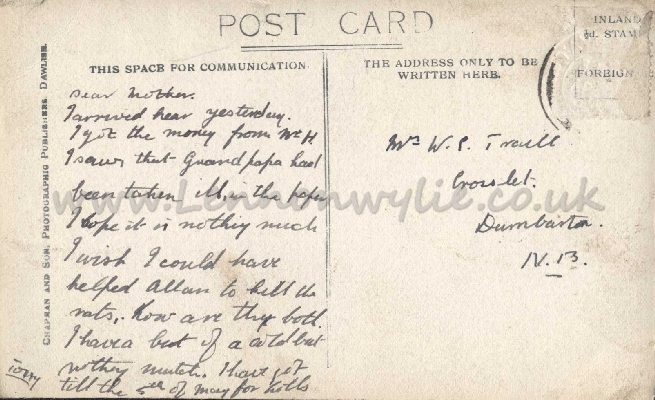 POST CARD
THIS SPACE FOR COMMUNICATION
THE ADDRESS ONLY TO BE
WRITTEN HERE.
INLAND
½d. STAMP
FOREIGN
CHAPMAN AND SON, PHOTOGRAPHIC PUBLISHERS, DAWLISH.
Dear Mother.
I arrived hear yesterday.
I got the money from Mr H.
I saw that Grandpapa had
been taken ill in the paper
I hope it is nothing much
I wish I could have
helped Allan to kill the
rats. How are they both.
I have a bit of a cold but
nothing much. I have got
till the 5th of May for holls
Tony
Mrs W. S. Traill
Crosslet.
Dumbarton.
N.B.
www.Lennonwylie.co.uk